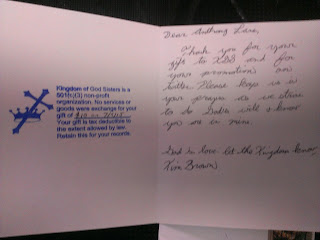 Kingdom of God Sisters is a
501(c)(3) non-profit
organization. No services or
goods were exchange for your
gift of
Your gift is tax deductible to
the extent allowed by law.
Retain this for your records.
Dear Anthony
Thank you for your
gift to KGS and for
your promotions on
twitter. Please keep us in
your prayers as we strive
to do God's will & know
you are in mine.
God is love let the Kingdom know,
Kim Brown